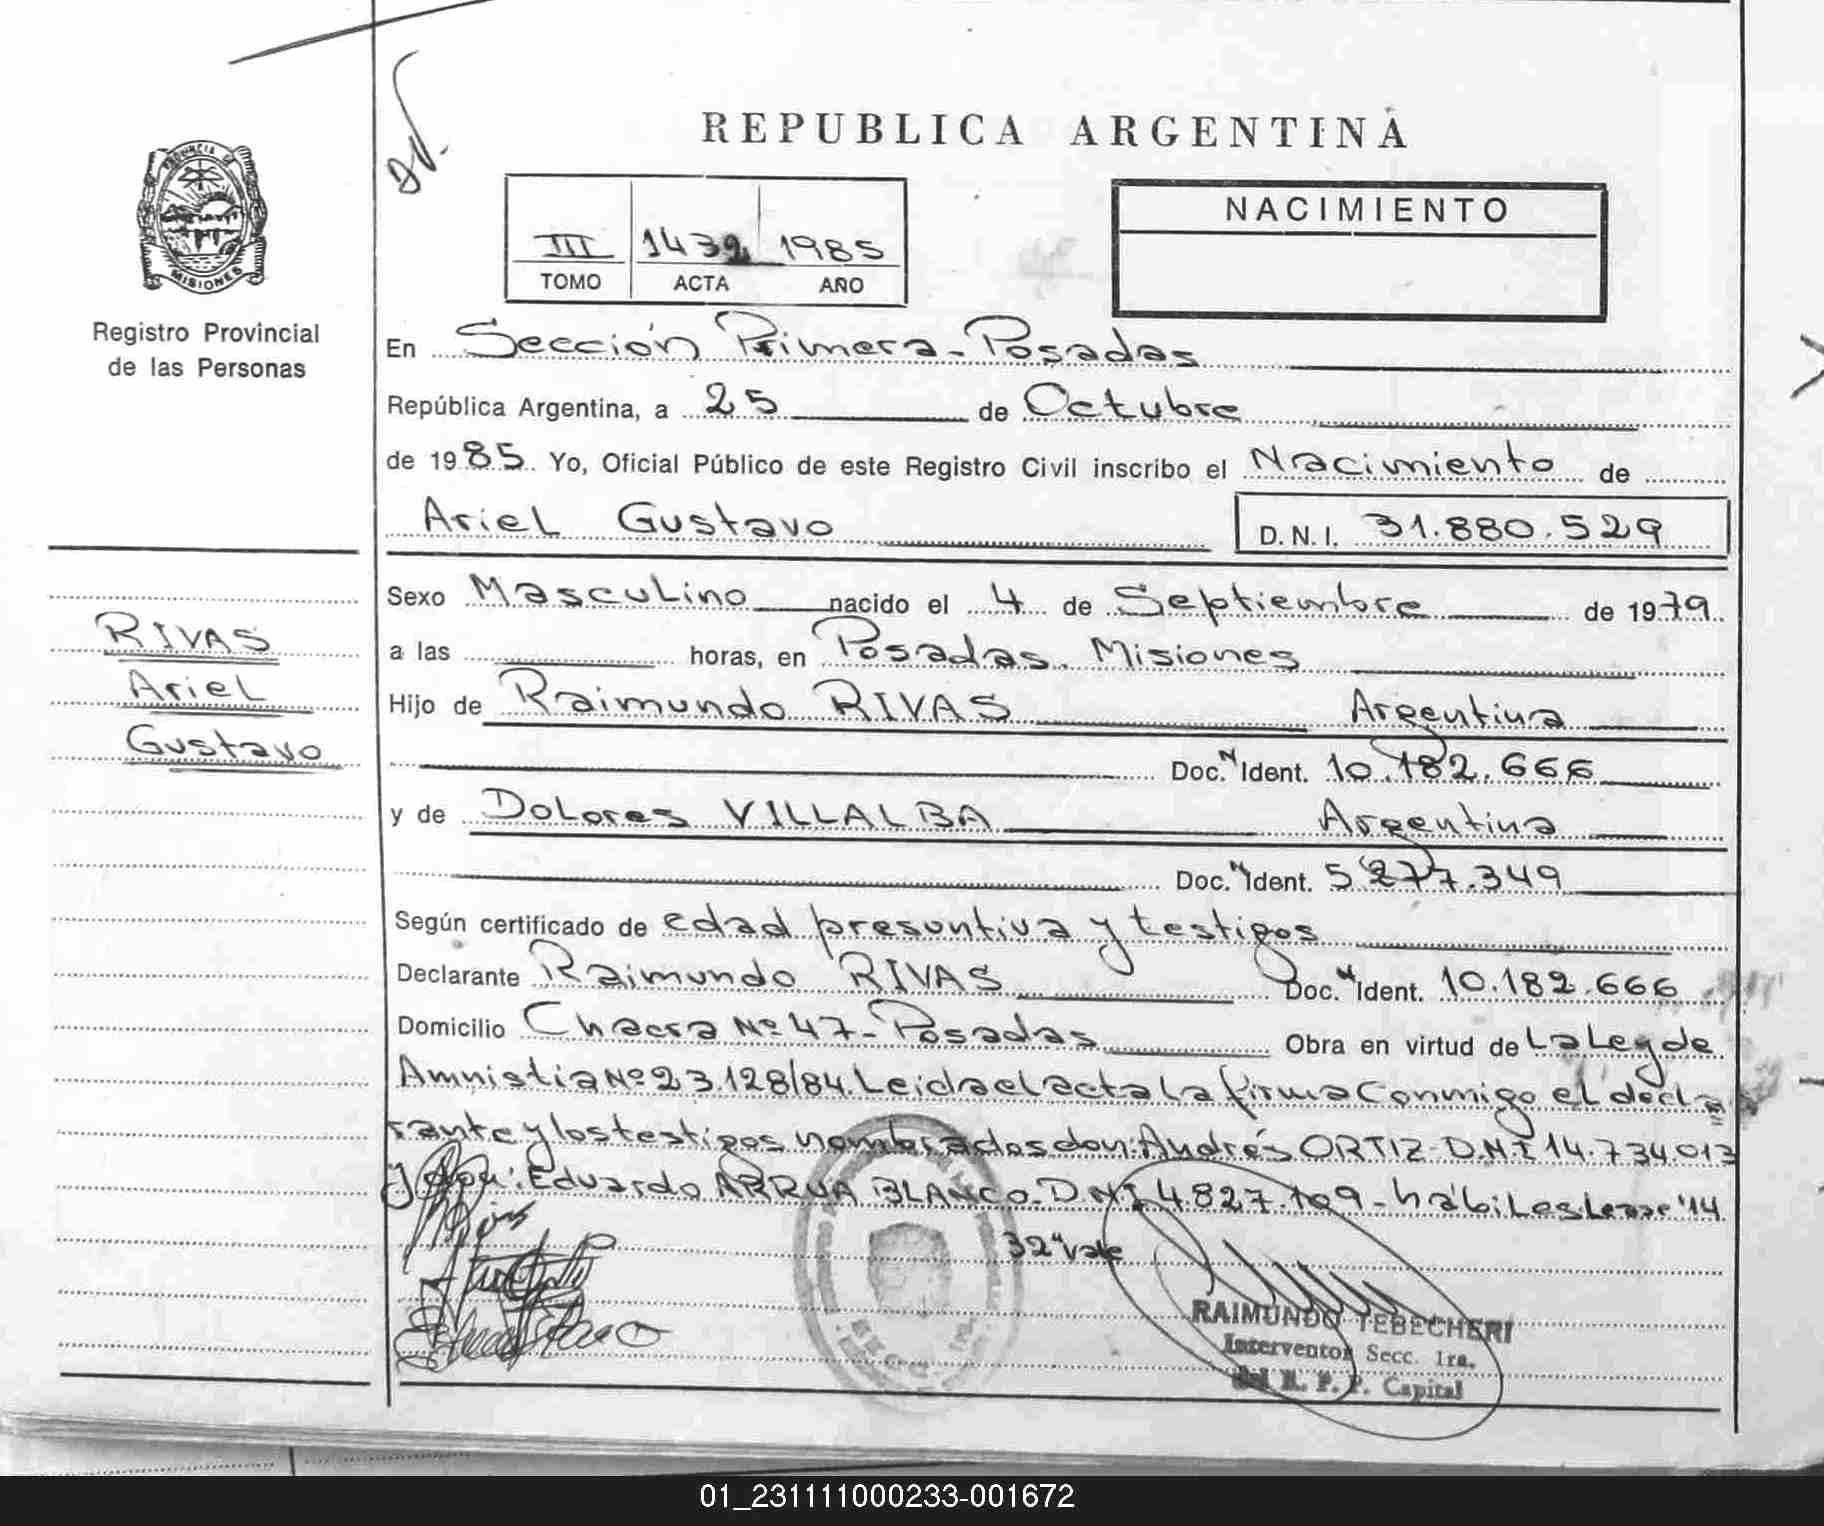 REPUBLICA ARGENTINA
PROVINCIA DE
MISIONES
Registro Provincial
de las Personas
III 1432 1985
TOMO ACTA AÑO
NACIMIENTO
En Sección Primera - Posadas
República Argentina, a 25 de Octubre
de 1985. Yo, Oficial Público de este Registro Civil inscribo el Nacimiento de
Ariel Gustavo D.N.I. 31.880.529
Sexo Masculino nacido el 4 de Septiembre de 1979
a las horas, en Posadas. Misiones
RIVAS
Ariel
Gustavo
Hijo de Raimundo RIVAS Argentina
Doc. N Ident. 10.182.666
y de Dolores VILLALBA Argentina
Doc. N Ident. 5.277.349
Según certificado de edad presuntiva y testigos
Declarante Raimundo RIVAS Doc. N Ident. 10.182.666
Domicilio Chacra Nº 47 - Posadas Obra en virtud de La Ley de
Amnistia Nº 23.128/84. Leida el acta La firma Conmigo el decla
rante y los testigos nombrados don: Andrés ORTIZ - D.N.I 14.734.013
y don: Eduardo ARRUA BLANCO - D.N.I 4.827.109 - hábiles Lease "14
32" Vale
RAIMUNDO TEBECHERI
Interventor Secc. 1ra.
del R. P. P. Capital
01_231111000233-001672